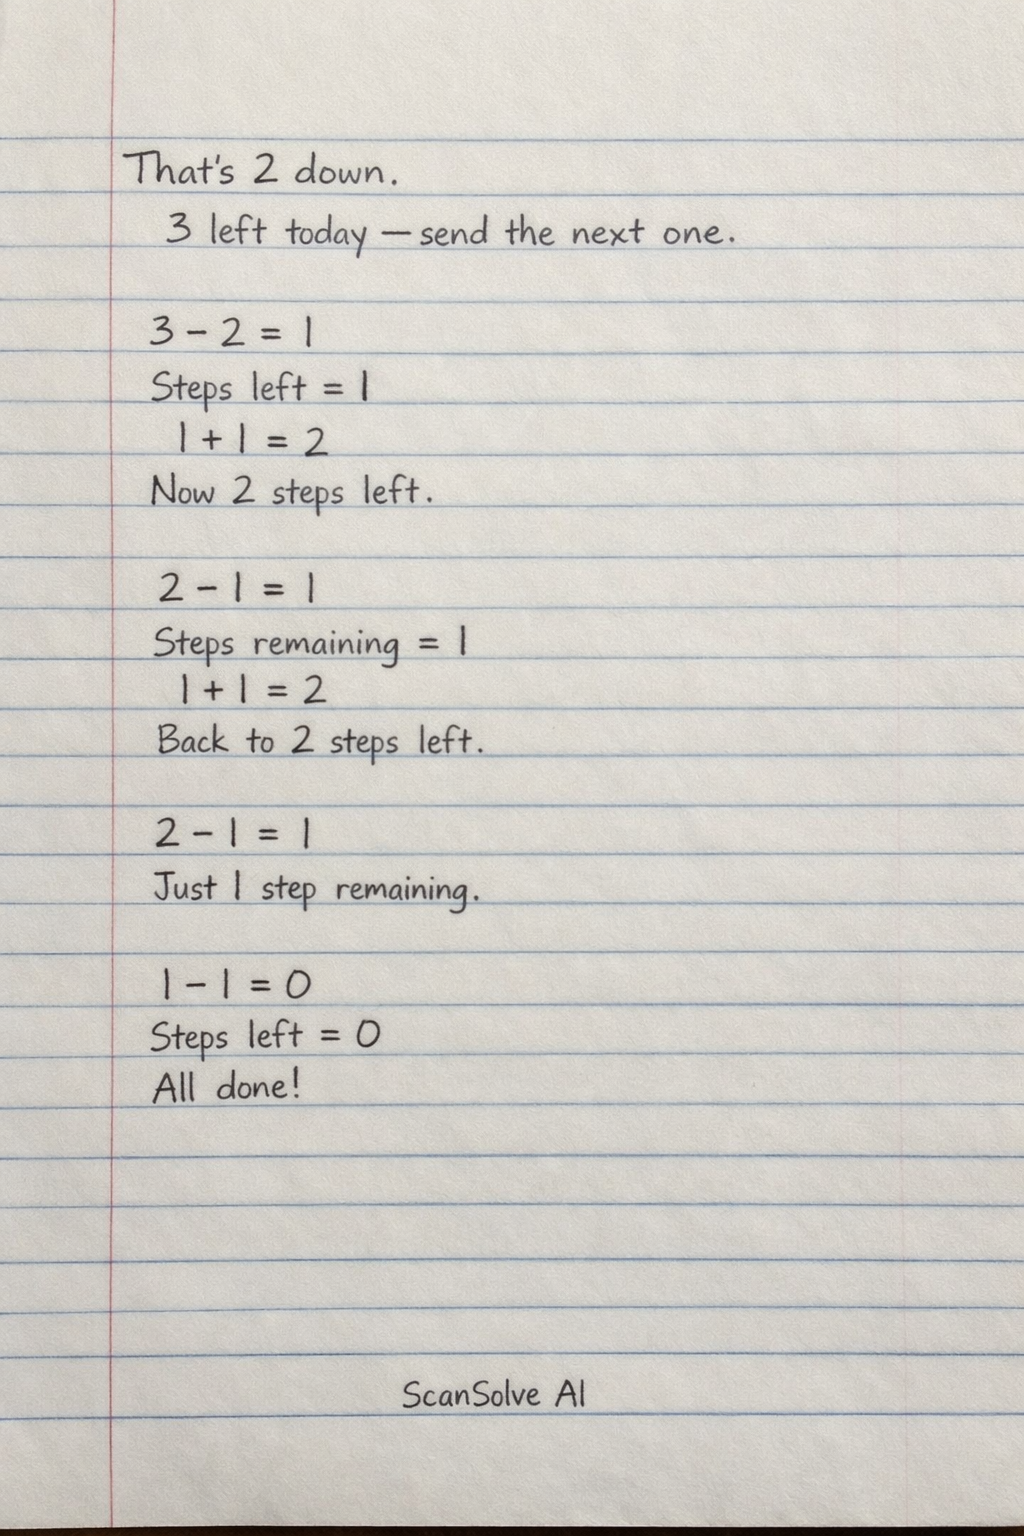 That's 2 down.
3 left today — send the next one.
3 - 2 = 1
Steps left = 1
1 + 1 = 2
Now 2 steps left.
2 - 1 = 1
Steps remaining = 1
1 + 1 = 2
Back to 2 steps left.
2 - 1 = 1
Just 1 step remaining.
1 - 1 = 0
Steps left = 0
All done!
ScanSolve AI